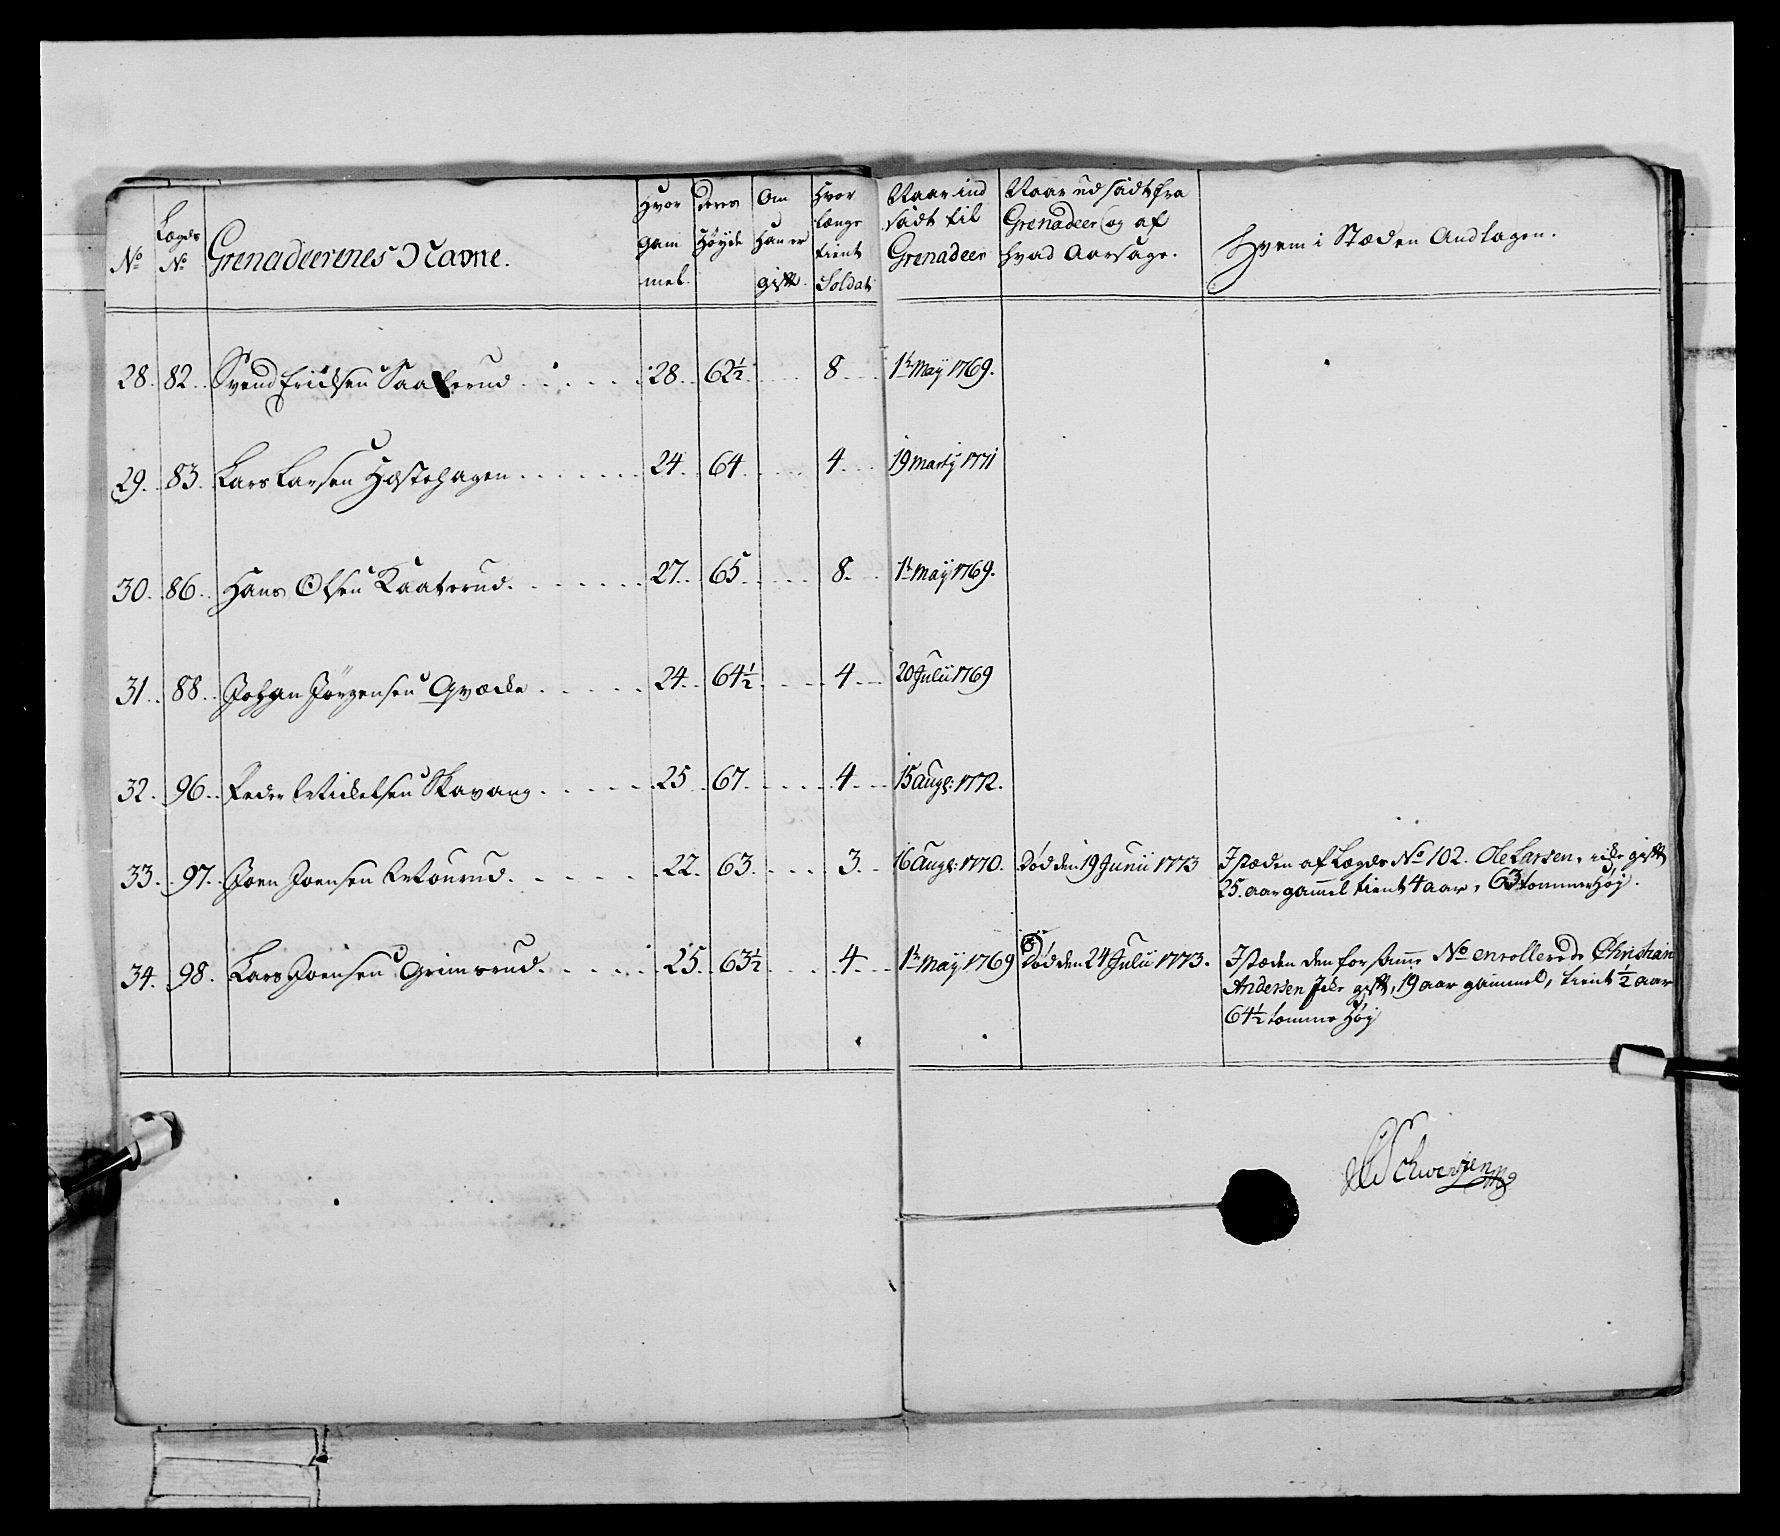 No
Lægds No
Grenadeerenes Navne.
Hvor gam mel.
deres Høyde
Om Han er gift.
Hvor længe tient Soldat
Naar ind sadt til Grenadeer
Naar udsadt fra Grenadeer og af hvad Aarsage.
Hvem i Stæden Andtagen.
28. 82. Svend Ericksen Saaterud 28. 62½ 8 1te May 1769.
29. 83. Lars Larsen Hæstehagen 24. 64 4. 19 Martj 1771
30. 86. Hans Olsen Kaaterud. 27. 65. 8. 1te May 1769.
31. 88. Johan Jörgensen Qvæcke 24. 64½ 4 20 Julii 1769
32. 96. Peder Mickelsen Skavang 25 67. 4 15 Augs: 1772.
33. 97. Joen Joensen 22. 63. 3. 16 Augs: 1770. Død den 19 Junii 1773 I stæden af Lægds No 102. Ole Larsen, icke gift
25. aar gammel tient 4 aar, 63 tommer Høj.
34. 98. Lars Joensen Grimsrud. 25. 63½ 4 1te May 1769 Død den 24 Julii 1773. I stæden den for samme No enrollerede Christian
Andersen Icke gift, 19 aar gammel, tient ½ aar
64½ tomme Høj
Schwersen